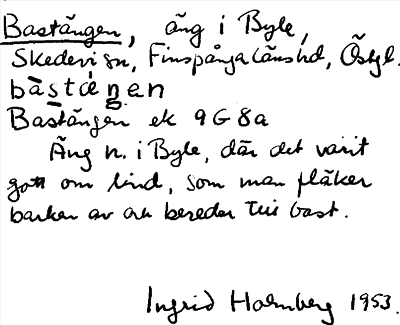 Bastängen, äng i Byle,
Skedevi sn, Finspånga länshd, Östgl.
bàstäŋen
Bastängen ek 9G8a
Äng n. i Byle, där det varit
gott om lind, som man fläker
barken av och bereder till bast.
Ingrid Holmberg 1953.